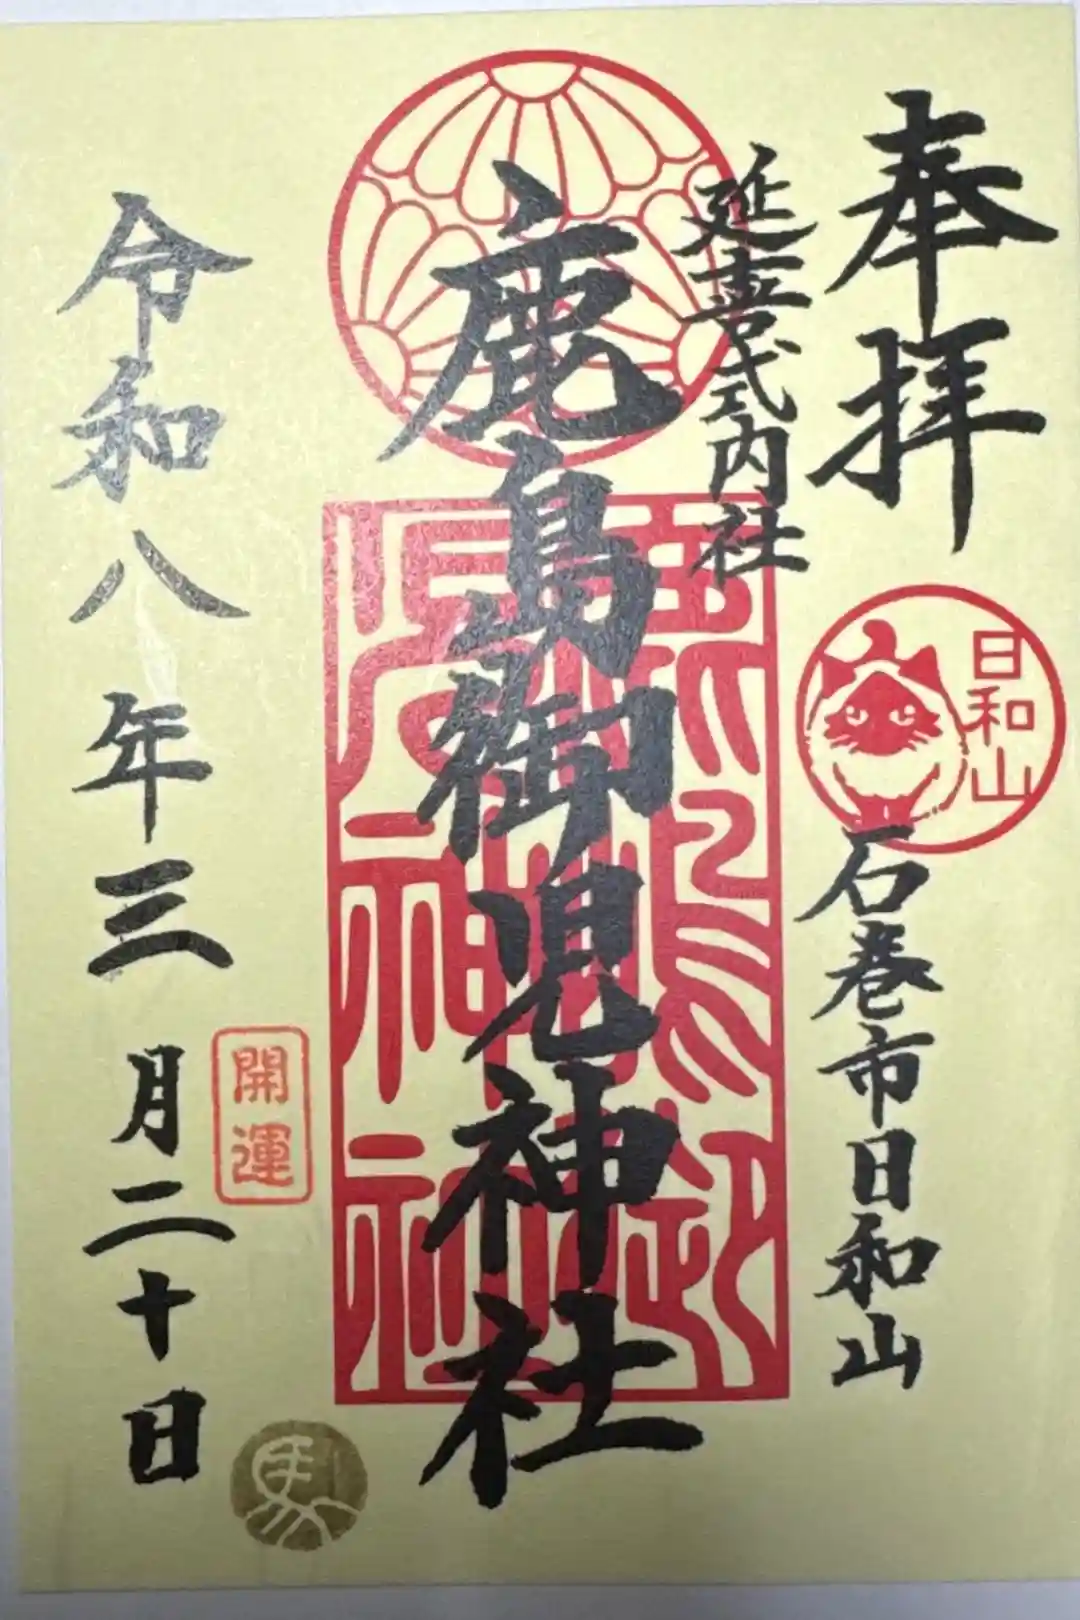 奉拝
延喜式内社
日和山
石巻市日和山
鹿島御児神社
開運
令和八年三月二十日